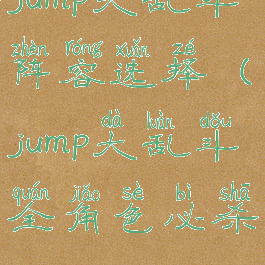 jump大乱斗
zhèn róng xuǎn zé
阵容选择(
dà luàn dǒu
jump大乱斗
quán jiǎo sè bì shā
全角色必杀